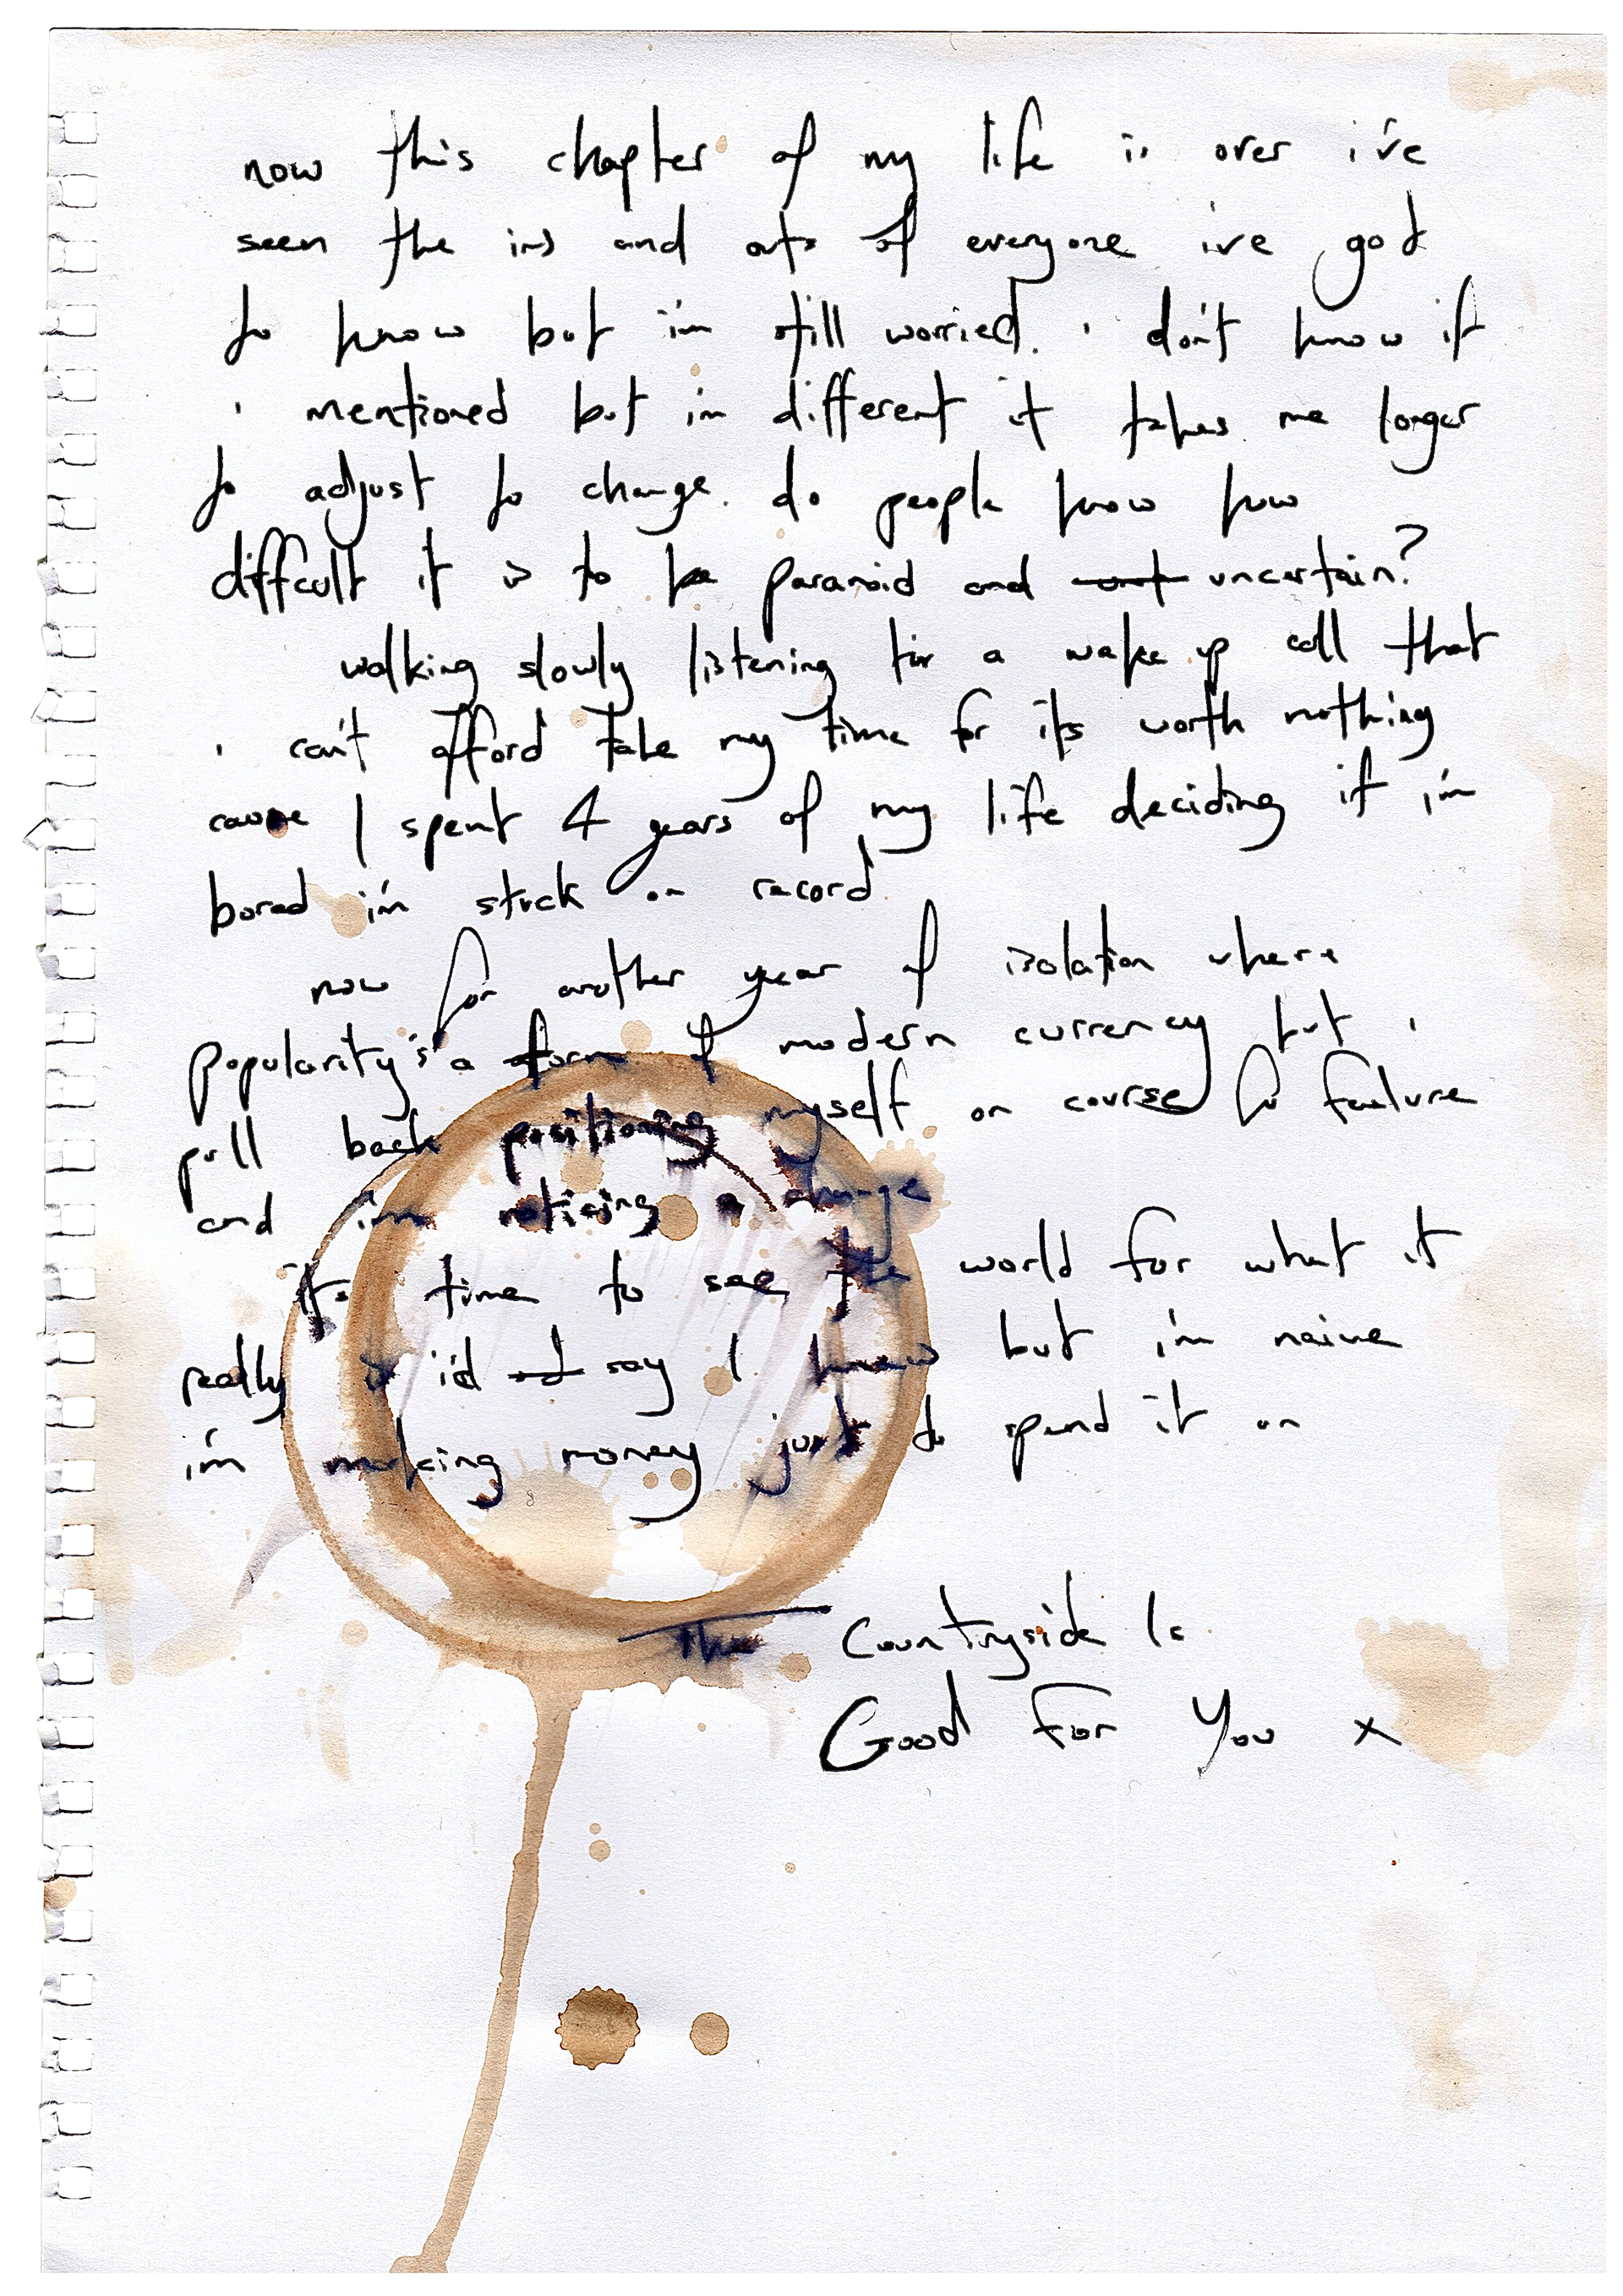 now this chapter of my life is over i've
seen the ins and outs of everyone ive got
to know but i'm still worried. i don't know if
i mentioned but i'm different it takes me longer
to adjust to change. do people know how
difficult it is to be paranoid and uncertain?
walking slowly listening for a wake up call that
i can't afford take my time for its worth nothing
cause I spent 4 years of my life deciding if i'm
bored i'm stuck on record
now for another year of isolation where
popularity's a form of modern currency but i
pull back positioning myself on course to failure
and i'm noticing a change
it's time to see the world for what it
really is i'd say I knew but i'm naive
i'm making money just to spend it on
The Countryside Is
Good For You x